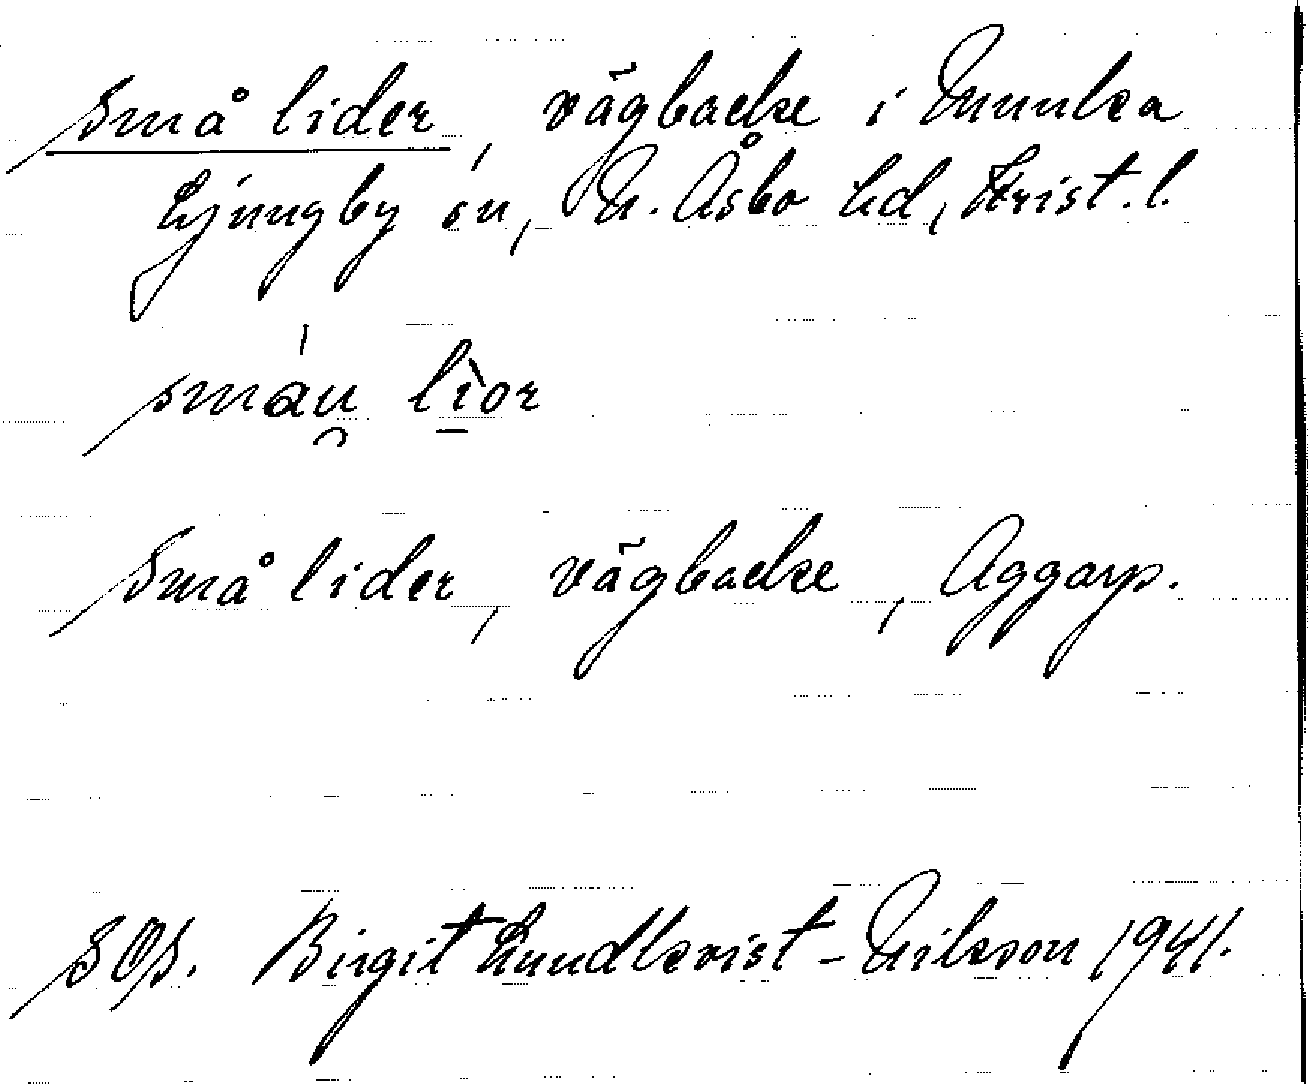 Små lider, vägbacke i Munka
Ljungby sn, N. Åsbo hd, Krist. l.
smáu̯ lìor
Små lider, vägbacke, Aggarp.
SOS. Birgit Lundkvist-Nilsson 1941.